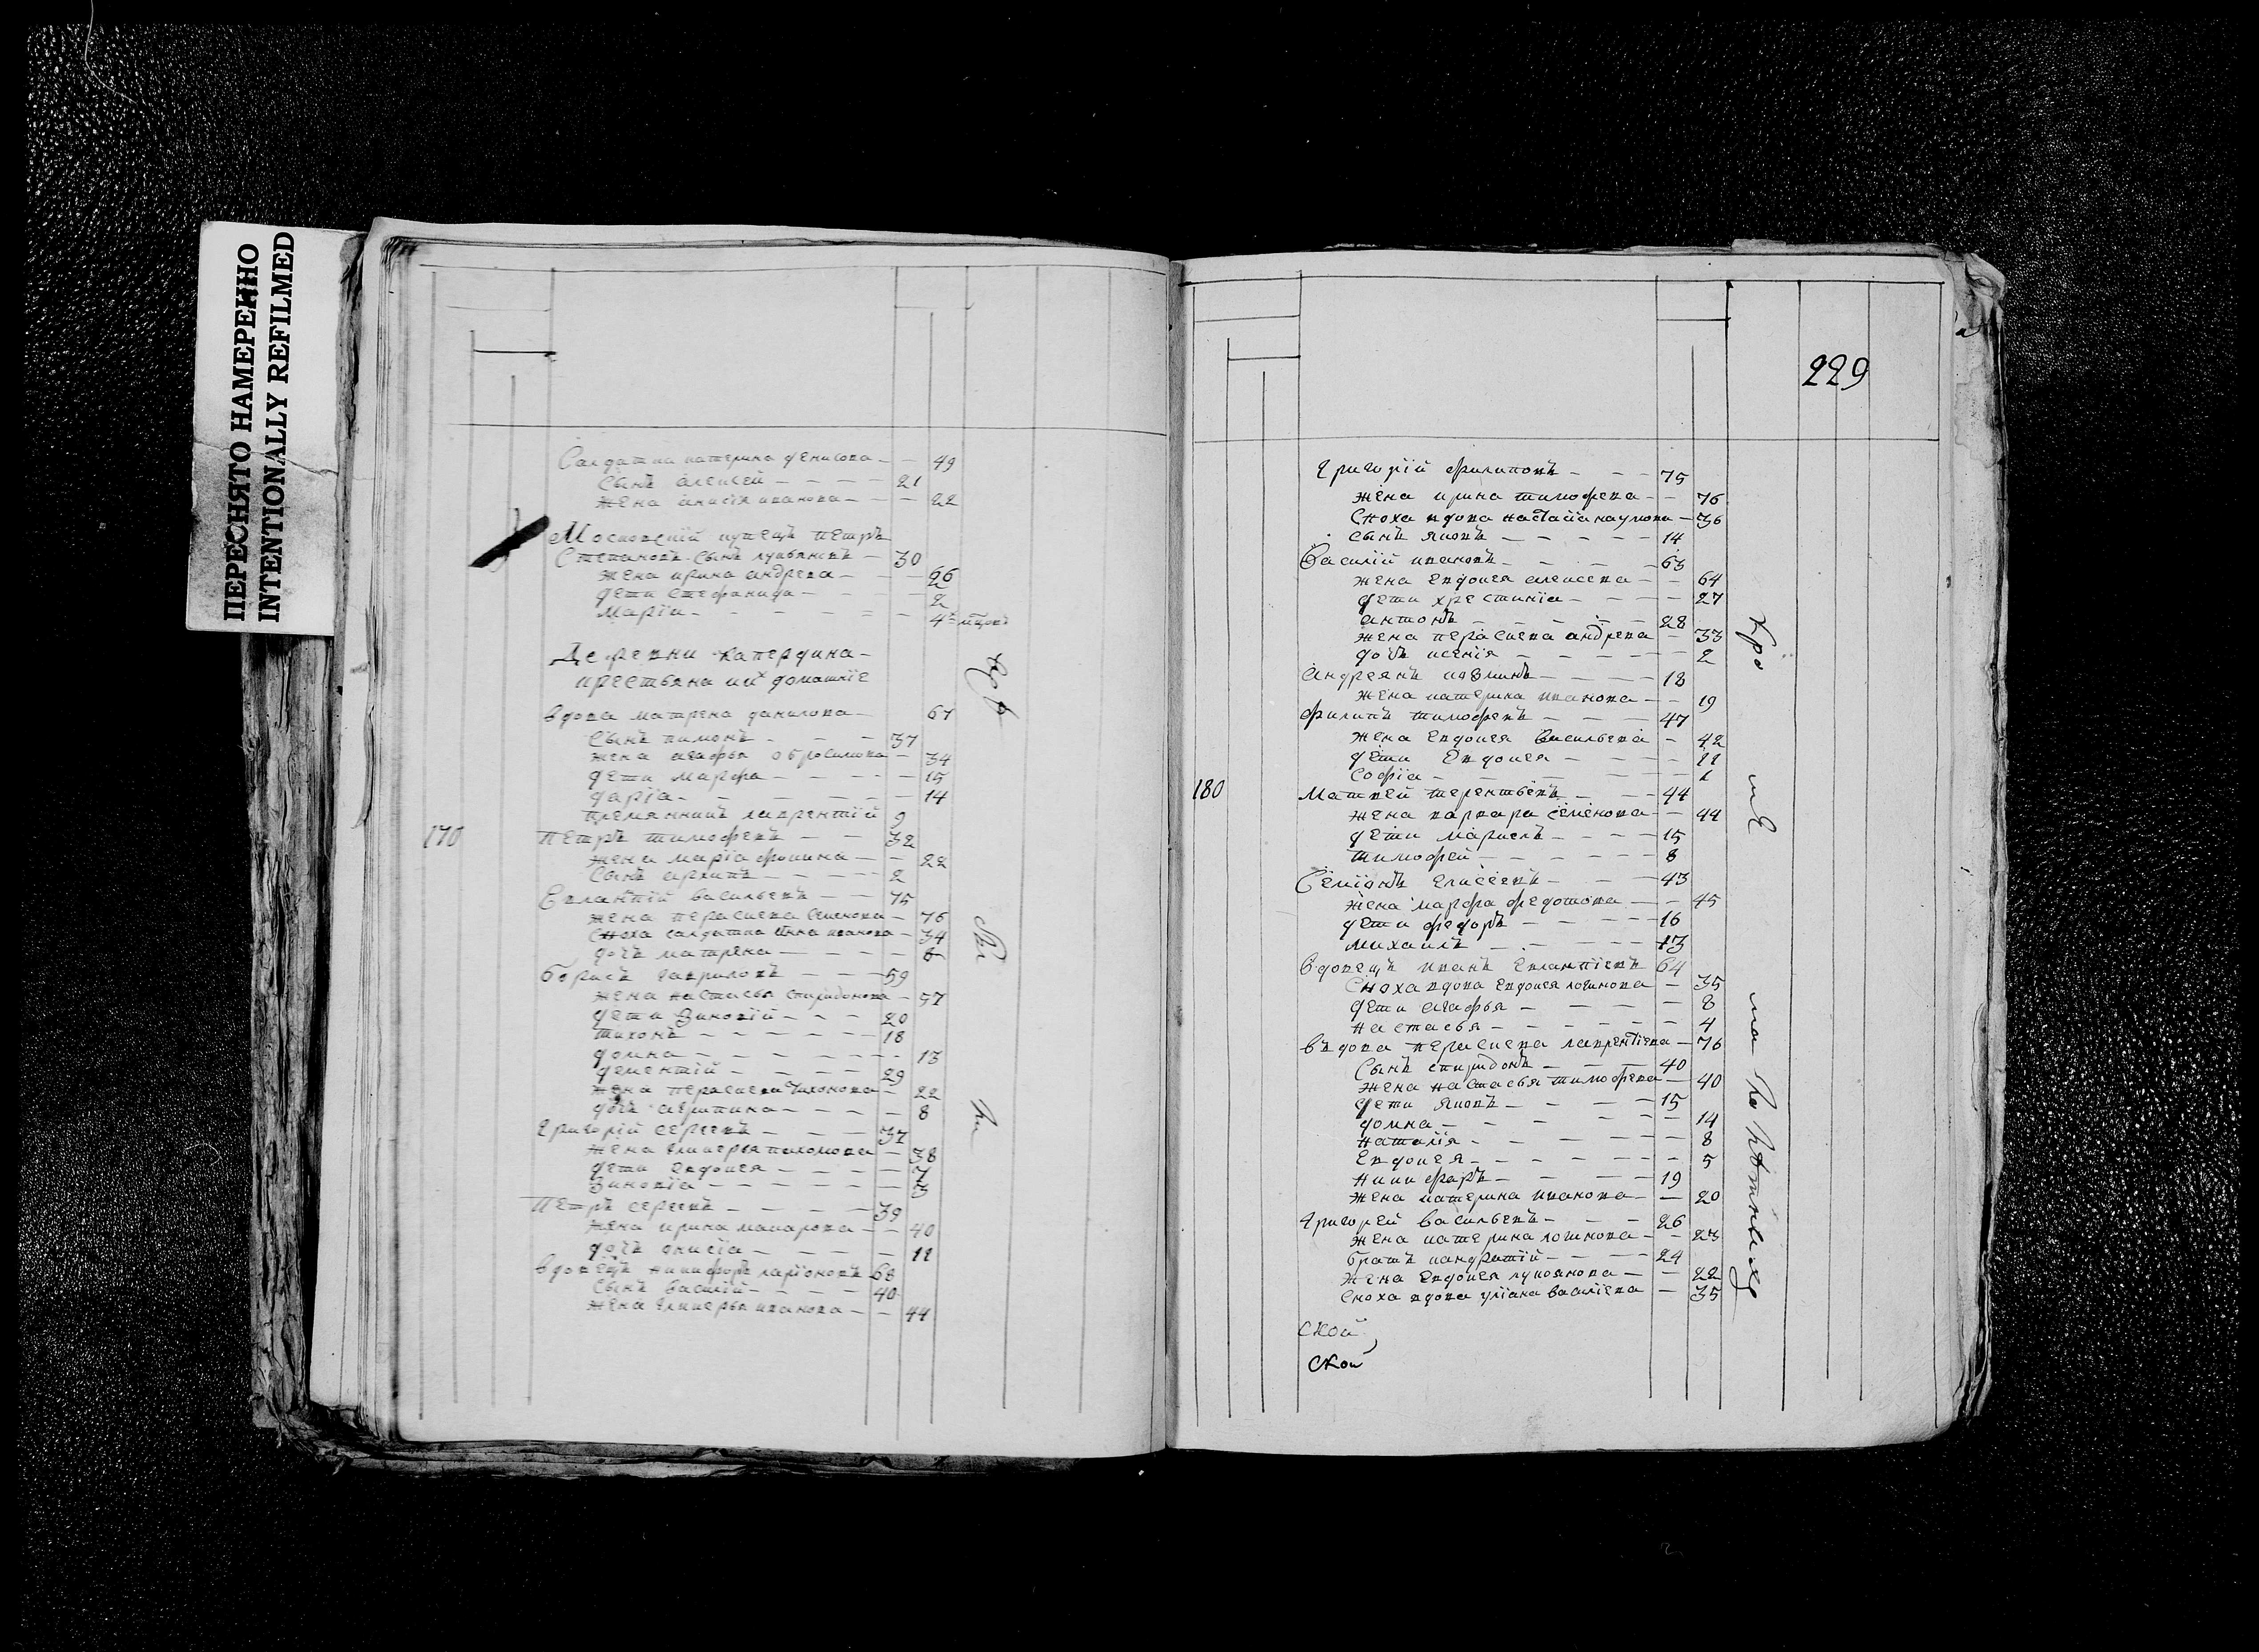 ПЕРЕСНЯТО НАМЕРЕННО
INTENTIONALLY REFILMED
Салдатка катерина денисова 49
Сынъ алексей 21
жена анисія иванова 22
Московскій купецъ петръ
Степановъ сынъ лукьяновъ 30
жена ирина андрева 26
дети Стефанида 2
Маріа 4х
Деревни
крестьяна ихъ домашніе
вдова матрена данилова 67
Сынъ пимонъ 37
жена агафья обросимова 34
дети марфа 15
даріа 14
племянникъ лаврентій 9
170 Петръ тимофевъ 32
жена маріа фомина 22
Сынъ архипъ 2
Евлантій васильевъ 75
жена параскева семенова 76
Сноха салдатка анна иванова 34
дочь матрена 6
борисъ гавриловъ 59
жена настасья спиридонова 57
дети Зиновій 20
тихонъ 18
домна 13
дементій 29
жена пераскева тихонова 22
дочь агрипина 8
Григорій сергевъ 37
жена гликерья пахомова 38
дети евдокея 7
Зиновіа 3
Петръ сергевъ 39
жена ирина макарова 40
дочь анисіа 11
вдовецъ никифоръ ларіоновъ 68
Сынъ василій 40
жена гликерья иванова 44
229
Григорій филиповъ 75
жена ирина тимофева 76
Сноха вдова настасіа наумова 36
сынъ яковъ 14
Василій ивановъ 63
жена Евдокея алексева 64
дети христиніа 27
антонъ 28
жена пераскева андрева 33
дочь ксенія 2
Андреянъ козминъ 18
жена катерина иванова 19
филипъ тимофевъ 47
жена Евдокея Васильева 42
дети Евдокея 11
Софіа 1
180 Матвей терентьевъ 44
жена варвара семенова 44
дети маркелъ 15
тимофей 8
Семіонъ елисеевъ 43
жена марфа федотова 45
дети федоръ 16
михаилъ 13
Вдовецъ иванъ Евлантіевъ 64
Сноха вдова Евдокея логинова 35
дети агафья 8
настасья 4
въдова пераскева лаврентіева 76
Сынъ спиридонъ 40
жена настасья тимофева 40
дети яковъ 15
домна 14
наталія 8
Евдокея 5
никифаръ 19
жена катерина иванова 20
Григорей васильевъ 26
жена катерина логинова 23
братъ кандратій 24
жена Евдокея лукоянова 22
Сноха вдова уліана василіева 35
ской
Ской